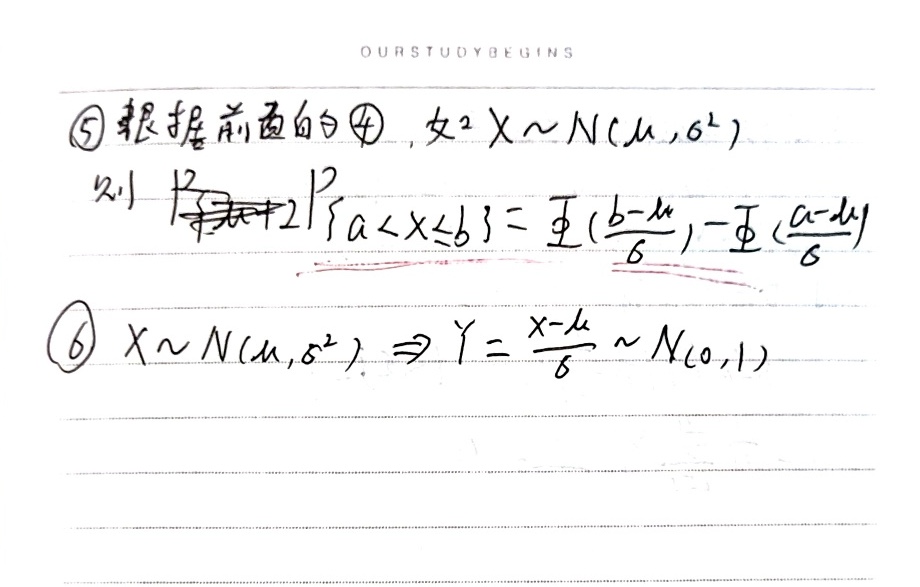 OURSTUDYBEGINS
⑤ 根据前面的④, 如 X ~ N(μ, σ²)
则 P{a < X ≤ b} = Φ((b-μ)/σ) - Φ((a-μ)/σ)
⑥ X ~ N(μ, σ²) ⇒ Y = (X-μ)/σ ~ N(0,1)